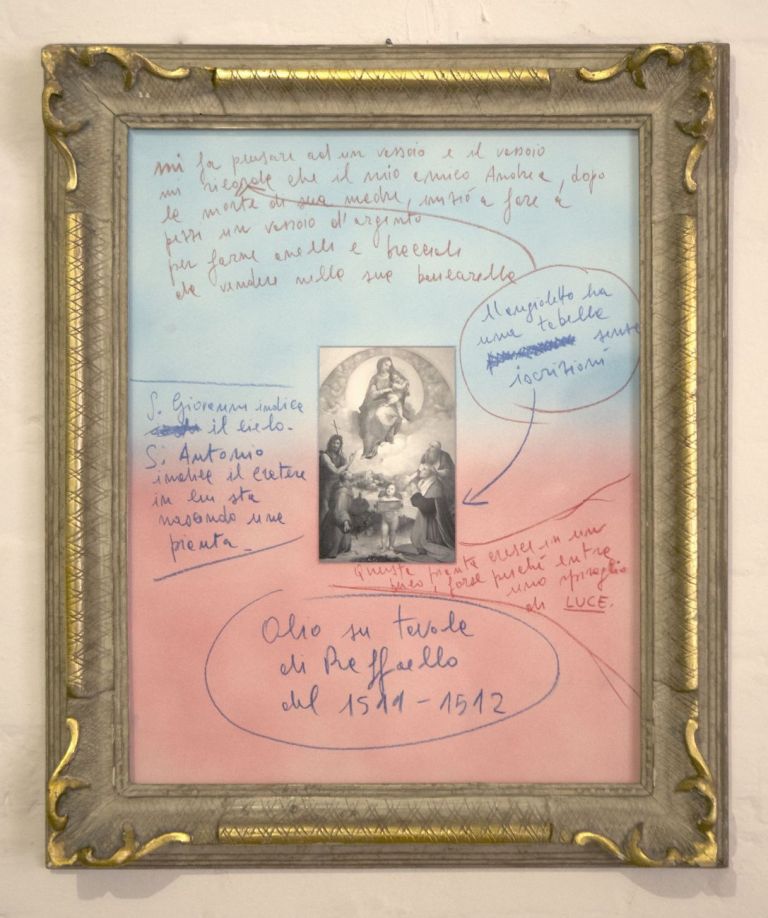 mi fa pensare ad un vassoio e il vassoio
mi ricorda che il mio amico Andrea, dopo
la morte di sua madre, iniziò a fare a
pezzi un vassoio d'argento
per farne anelli e bracciali
da vendere nella sua bancarella
l'angioletto ha
una tabella
senza
iscrizioni
S. Giovanni indica
il cielo.
S. Antonio
indica il cratere
in cui sta
nascendo una
pianta.
Questa pianta cresce in un
buco, forse perché entra
uno spiraglio
di LUCE.
Olio su tavola
di Raffaello
del 1511-1512